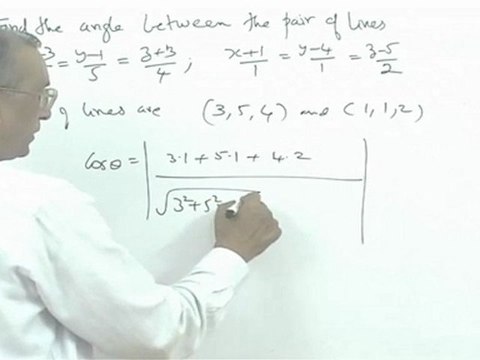 ind the angle between the pair of lines
-3 = y-1/5 = z+3/4 ; x+1/1 = y-4/1 = z-5/2
of lines are (3, 5, 4) and (1, 1, 2)
cosθ = | 3·1 + 5·1 + 4·2 / √3²+5² |